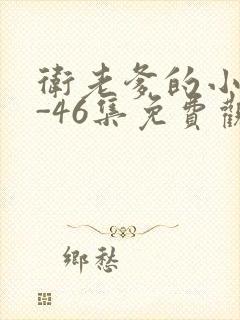 衛老爹的小
-46集免費觀
鄉愁